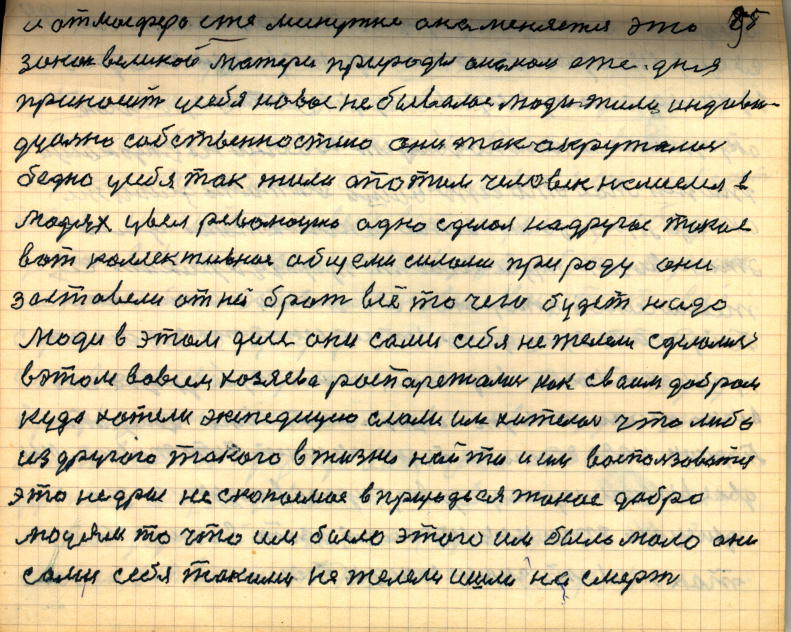 и атмосфера стя минутна она меняется это 95
закон великой матери природы она нам эте. дня
приносит усебя новое небывалое люди жили индиви-
дуално собственностию они так окружались
бедно усебя так жили а потом человек нашелся в
людях увел революцию одно сделал на другое такое
вот коллективное общеми силами природу они
заставели от ней брат всё то чего будет надо
люди в этом деле они сами себя нежелели сделались
вэтом вовсем хозяева роспарежались как своим добром
куда хотели экспедицию слали им хателос что либо
из другого такого в жизни найти и им воспользоватся
это недрое не скопаемое в природе вся такое добро
людям то что им было этого им было мало они
сами себя такими не желели ишли на смерт